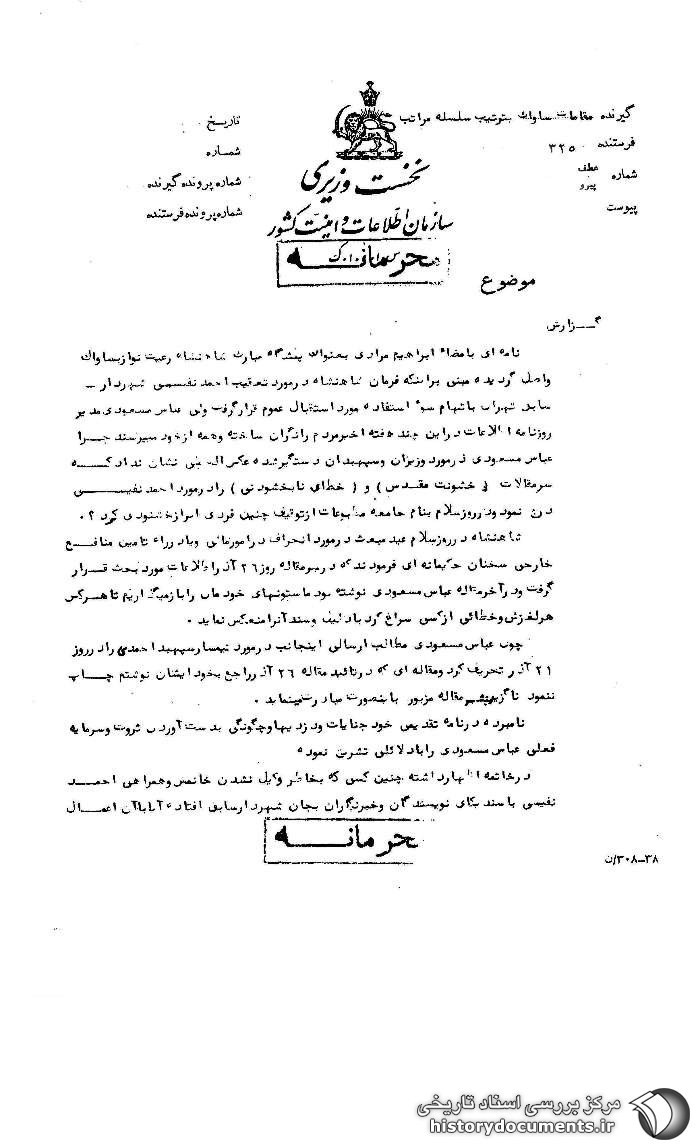 گیرنده مقامات ساواک بترتیب سلسله مراتب
فرستنده ۳۲۵
شماره عطف
پیرو
پیوست
تاریخ
شماره
شماره پرونده گیرنده
شماره پرونده فرستنده
نخست وزیری
سازمان اطلاعات و امنیت کشور
محرمانه
موضوع
گزارش
نامه ای بامضاء ابراهیم مرادی بعنوان پیشگاه مبارک شاهنشاه رعیت نواز بساواک
واصل گردیده مبنی براینکه فرمان شاهنشاه درمورد تعقیب احمد نفیسی شهردار
سابق تهران باتهام سوء استفاده مورد استقبال عموم قرارگرفت ولی عباس مسعودی مدیر
روزنامه اطلاعات دراین چند هفته اخیر مردم رانگران ساخته وهمه ازخود میپرسند چرا
عباس مسعودی درمورد وزیران وسپهبدان دستگیرشده عکس العملی نشان نداد که
سرمقالات (خشونت مقدس) و (خطای نابخشودنی) را درمورد احمد نفیسی
درج نمود ودر روزسلام بنام جامعه مطبوعات ازتوقیف چنین فردی ابرازخشنودی کرد ؟.
شاهنشاه در روزسلام عید مبعث درمورد انحراف درامورمالی ویا در ازاء تامین منافع
خارجی سخنان حکیمانه ای فرمودند که درسرمقاله روز ۲۶ آذر اطلاعات مورد بحث قرار
گرفت ودرآخرمقاله عباس مسعودی نوشته بود ماستونهای خودمان رابازمیگذاریم تا هرکس
هرلغزش وخطائی ازکسی سراغ کرد بادلیل وسند آنرا منعکس نماید .
چون عباس مسعودی مطالب ارسالی اینجانب درمورد تیمسارسپهبد احمدی را در روز
۲۱ آذر تحریف کرد ومقاله ای که درتائید مقاله ۲۶ آذر راجع بخود ایشان نوشتم چاپ
ننمود ناگزیر بنشر مقاله مزبور باینصورت مبادرت مینماید .
نامبرده درنامه تقدیمی خود جنایات ودزدیها وچگونگی بدست آوردن ثروت وسرمایه
فعلی عباس مسعودی رابادلائلی تشریح نموده
درخاتمه اظهارداشته چنین کسی که بخاطر وکیل نشدن خانمش وهمراهی احمد
نفیسی باسندیکای نویسندگان وخبرنگاران بجان شهردارسابق افتاده آیا باآن اعمال
محرمانه
۳۸-۳۰۸/ن
مرکز بررسی اسناد تاریخی
historydocuments.ir